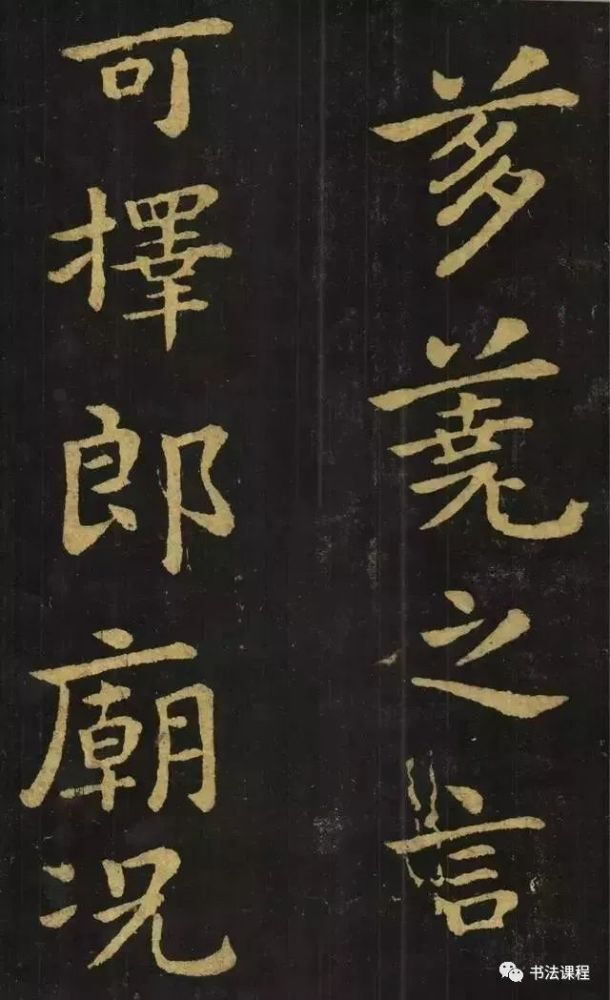 芻蕘之言
可擇郎廟况
书法课程